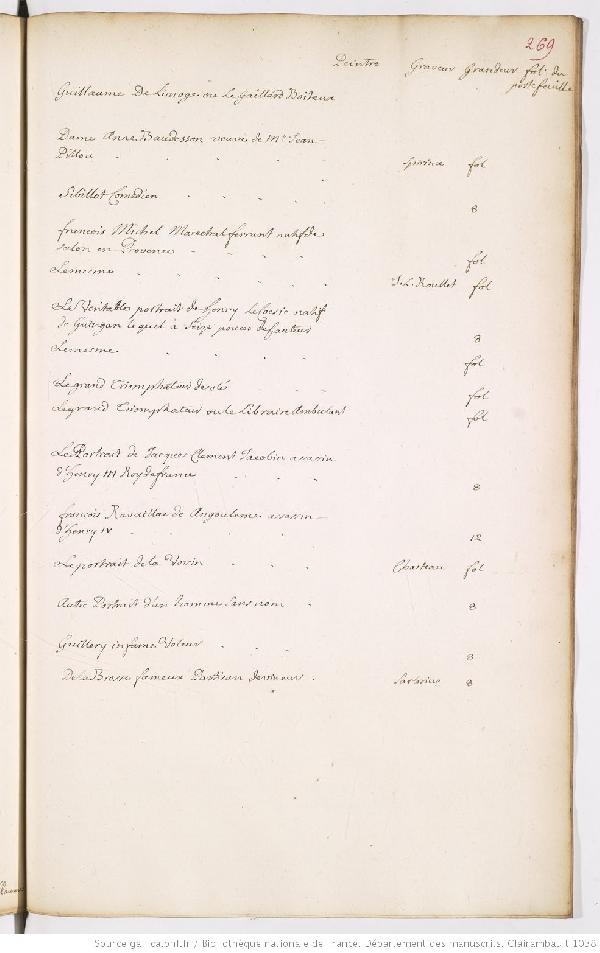 269
Peintre Graveur Grandeur fol. du
portefeuille
Guillaume De Limoge ou Le Gaillard Boiteux
Dame Anne Baudesson veuve de Mr. Jean
Pillon fol
Sibillot Comedien 8
francois Michel Marechal ferrant natif de
Salon en Provence fol
Lemesme J. L. Roullet fol
Le Veritables portrait de henry natif
de à Seize pouces de hauteur 8
Lemesme fol
Le grand Triomphateur fol
Le grand Triomphateur ou le Libraire Ambulant fol
Le Portrait de Jacques Clement Jacobin assasin
d'henry III Roy de france 8
francois Ravaillac de Angouleme assasin
d'henry IV 12
Le portrait de la Voisin Chasteau fol
Autre Portrait d'un homme sans nom 8
Guillery infame Voleur 8
De la Brosse fameux Partisan 8
Source gallica.bnf.fr / Bibliothèque nationale de France. Département des manuscrits. Clairambault 1038